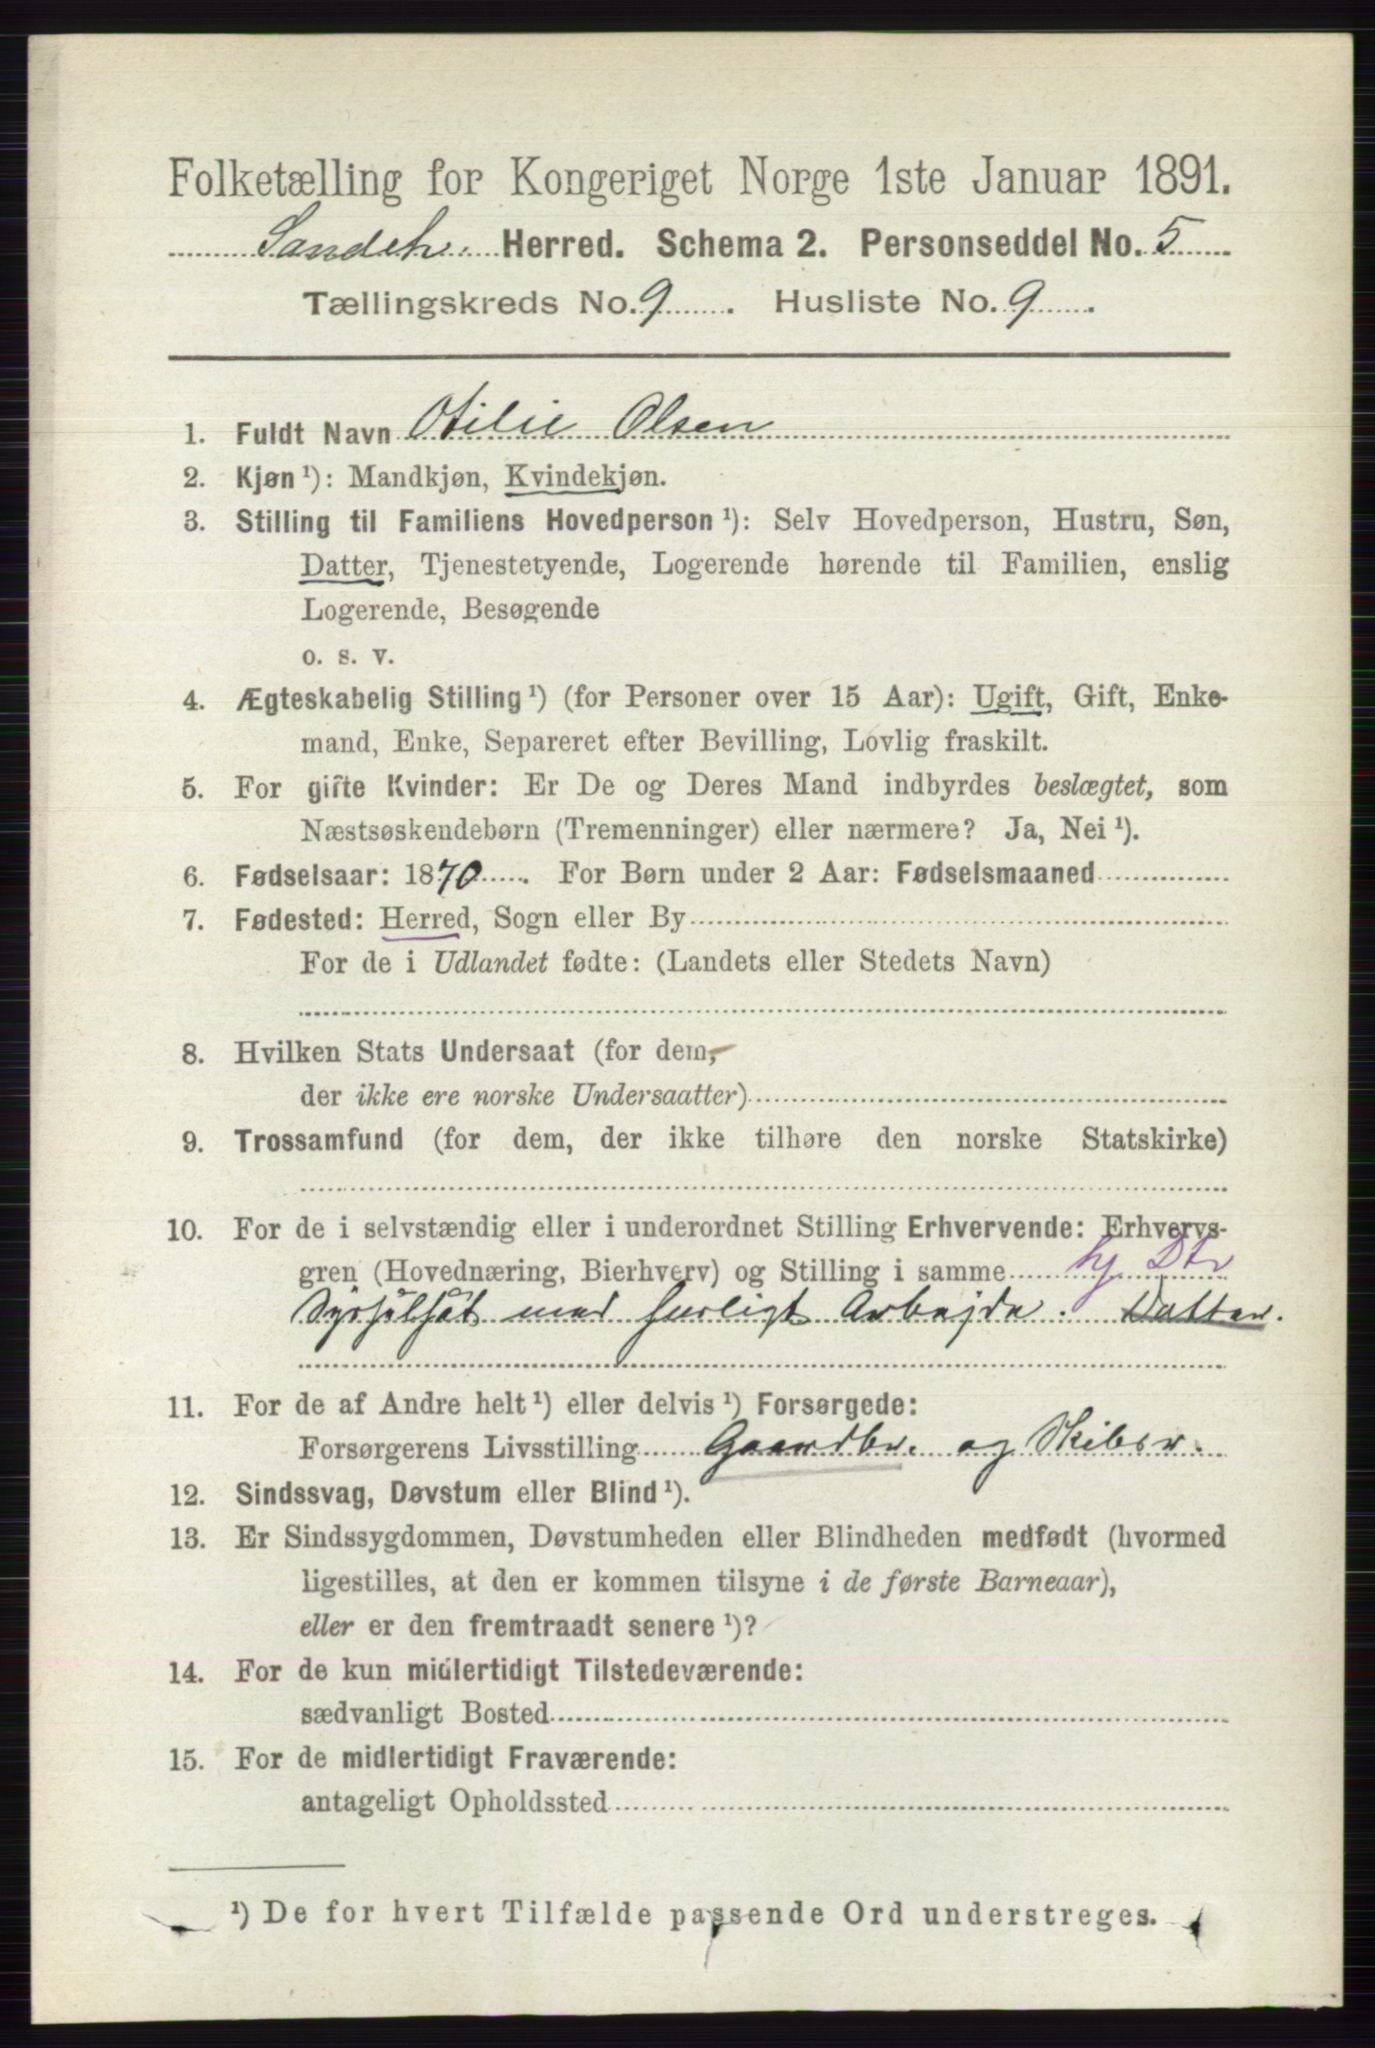 Folketælling for Kongeriget Norge 1ste Januar 1891.
Sandeh. Herred. Schema 2. Personseddel No. 5
Tællingskreds No. 9. Husliste No. 9.
1. Fuldt Navn Otilie Olsen
2. Kjøn ¹): Mandkjøn, Kvindekjøn.
3. Stilling til Familiens Hovedperson ¹): Selv Hovedperson, Hustru, Søn,
Datter, Tjenestetyende, Logerende hørende til Familien, enslig
Logerende, Besøgende
o. s. v.
4. Ægteskabelig Stilling ¹) (for Personer over 15 Aar): Ugift, Gift, Enke-
mand, Enke, Separeret efter Bevilling, Lovlig fraskilt.
5. For gifte Kvinder: Er De og Deres Mand indbyrdes beslægtet, som
Næstsøskendebørn (Tremenninger) eller nærmere? Ja, Nei ¹).
6. Fødselsaar: 1870. For Børn under 2 Aar: Fødselsmaaned
7. Fødested: Herred, Sogn eller By
For de i Udlandet fødte: (Landets eller Stedets Navn)
8. Hvilken Stats Undersaat (for dem,
der ikke ere norske Undersaatter)
9. Trossamfund (for dem, der ikke tilhøre den norske Statskirke)
10. For de i selvstændig eller i underordnet Stilling Erhvervende: Erhvervs-
gren (Hovednæring, Bierhverv) og Stilling i samme hj. Dtr
Sysselsat med husligt Arbejde. Datter.
11. For de af Andre helt ¹) eller delvis ¹) Forsørgede:
Forsørgerens Livsstilling Gaardbr. og Skiber.
12. Sindssvag, Døvstum eller Blind ¹).
13. Er Sindssygdommen, Døvstumheden eller Blindheden medfødt (hvormed
ligestilles, at den er kommen tilsyne i de første Barneaar),
eller er den fremtraadt senere ¹)?
14. For de kun midlertidigt Tilstedeværende:
sædvanligt Bosted
15. For de midlertidigt Fraværende:
antageligt Opholdssted
¹) De for hvert Tilfælde passende Ord understreges.